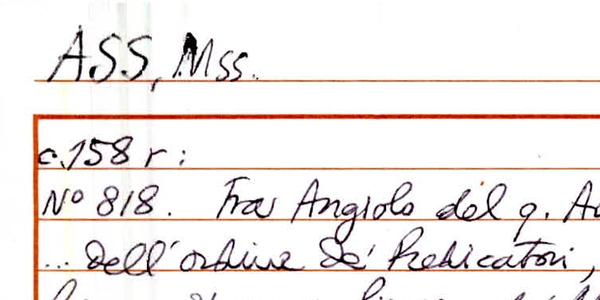 ASS, Mss.
c.158 r:
Nº 818. Fra Angiolo del q.
... dell'ordine de' Predicatori,